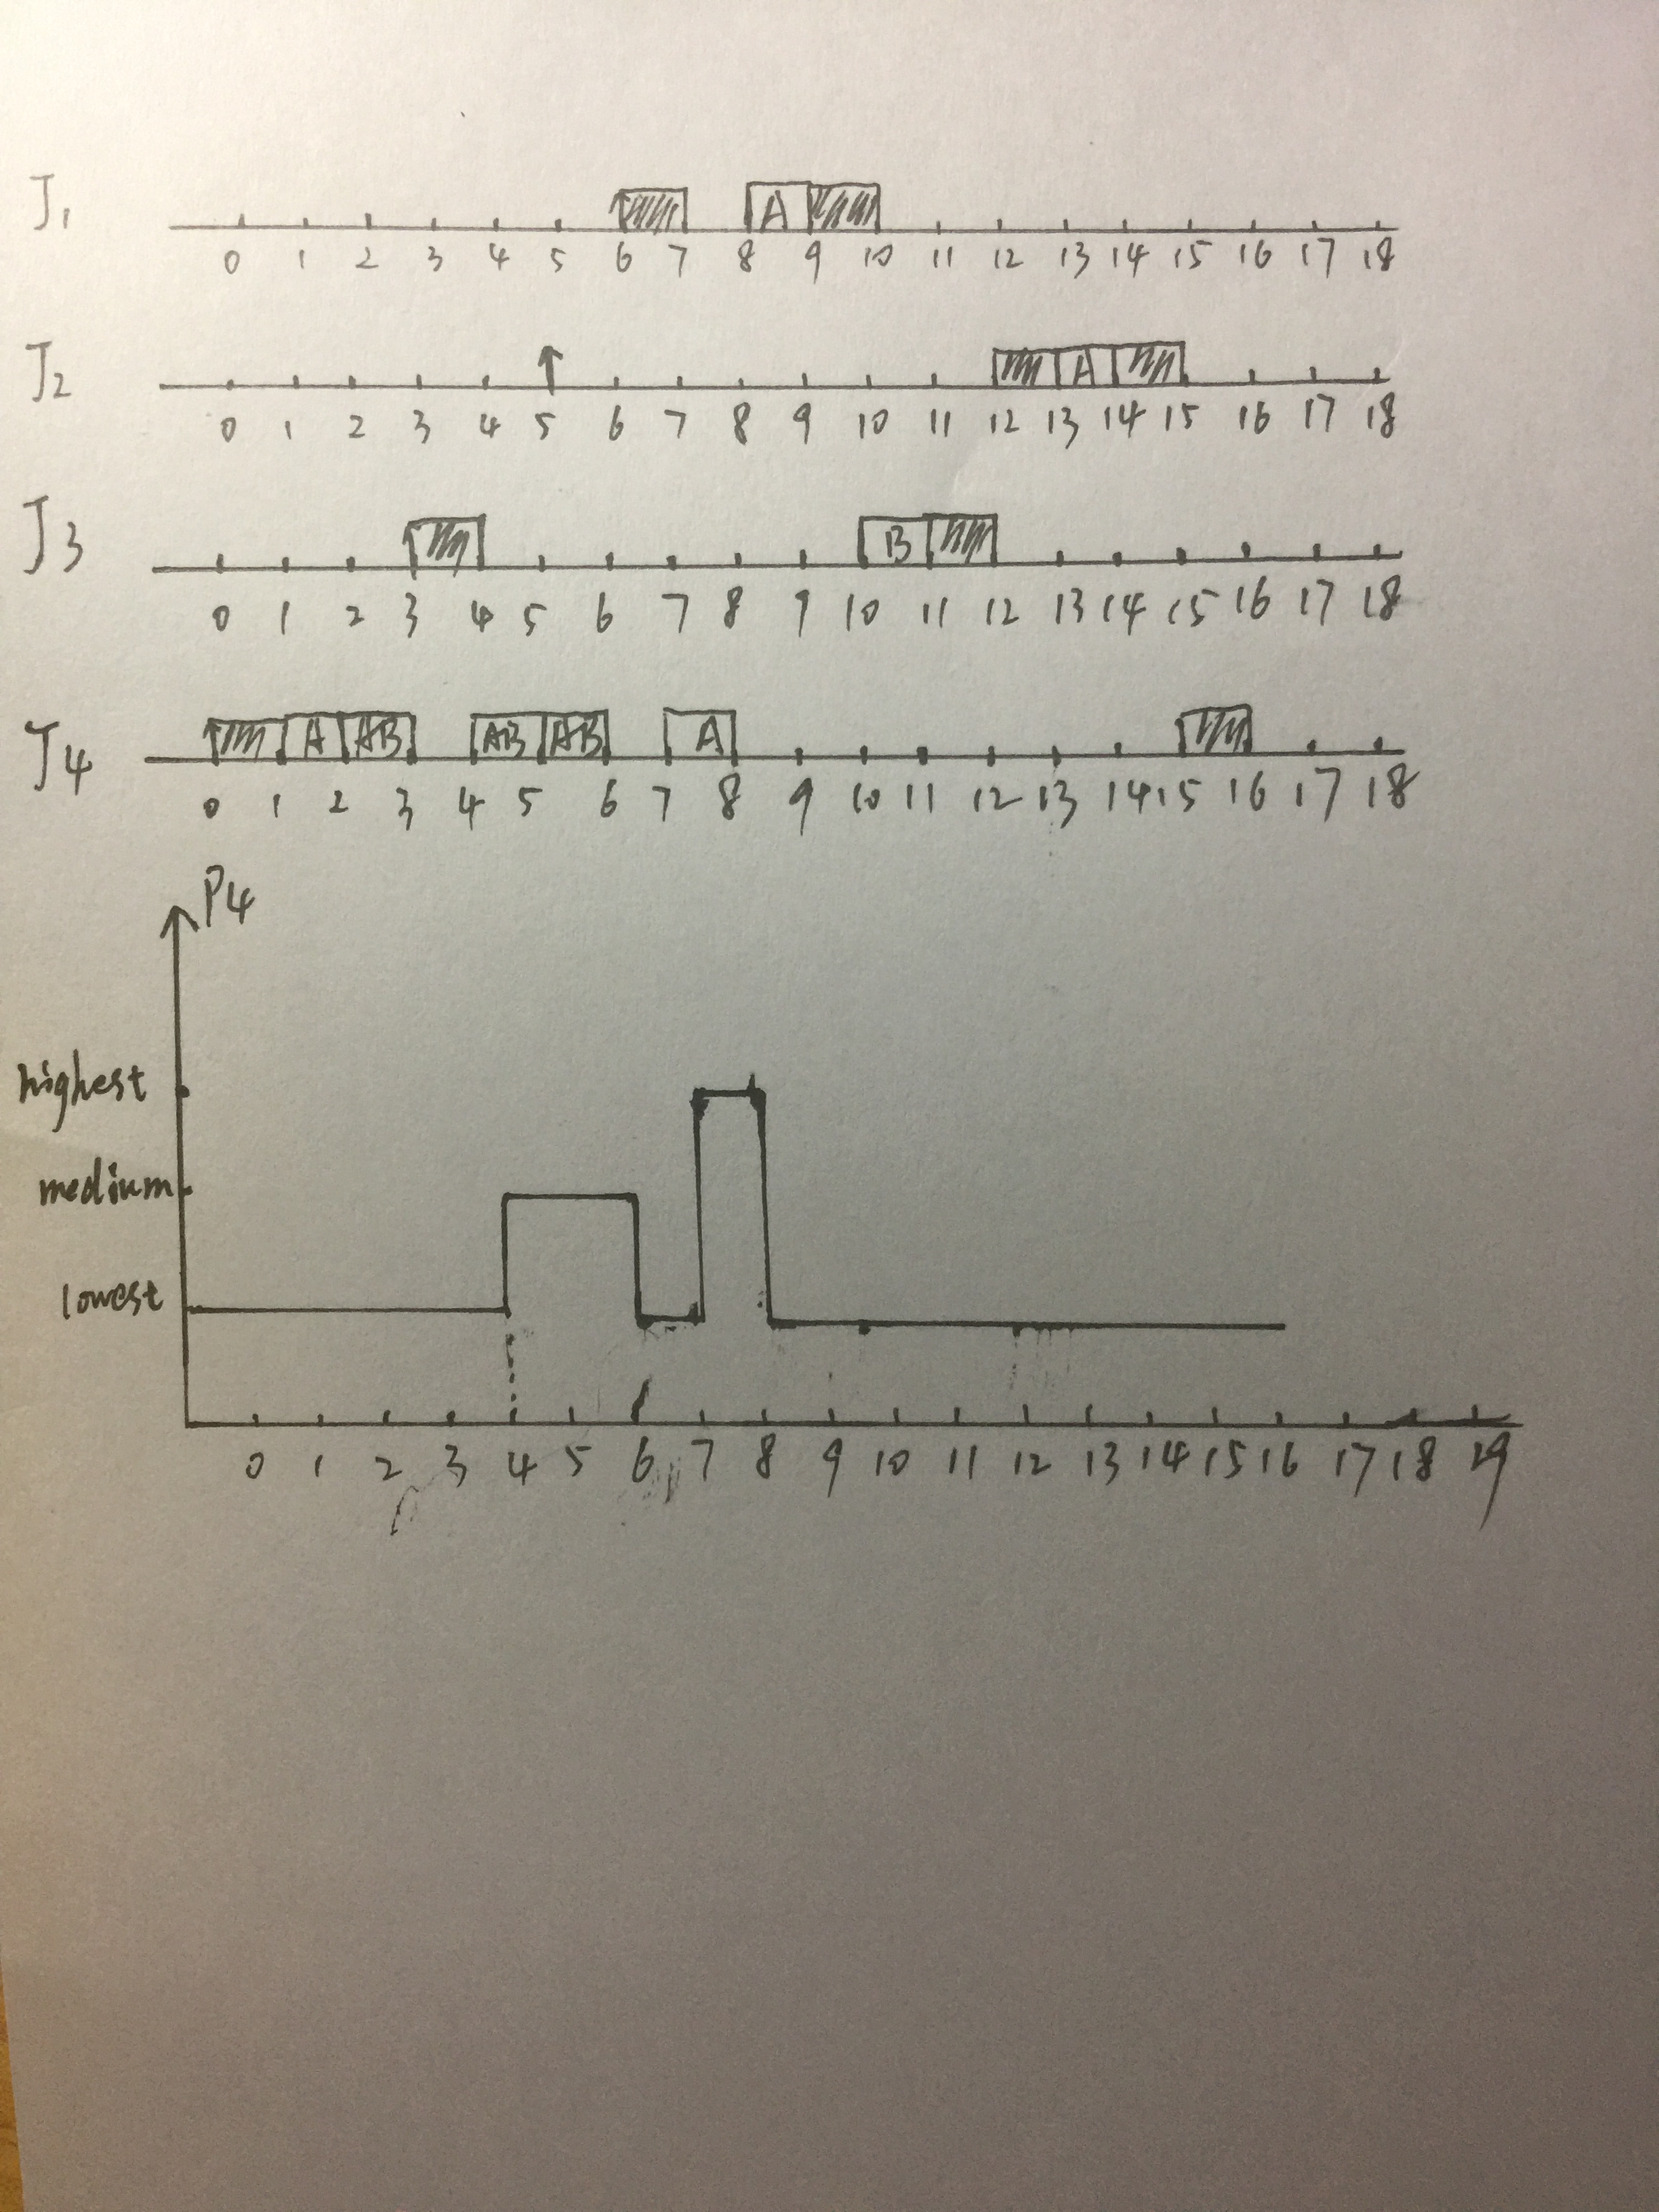 J1 A
0 1 2 3 4 5 6 7 8 9 10 11 12 13 14 15 16 17 18
J2 A
0 1 2 3 4 5 6 7 8 9 10 11 12 13 14 15 16 17 18
J3 B
0 1 2 3 4 5 6 7 8 9 10 11 12 13 14 15 16 17 18
J4 A AB AB AB A
0 1 2 3 4 5 6 7 8 9 10 11 12 13 14 15 16 17 18
P4
highest
medium
lowest
0 1 2 3 4 5 6 7 8 9 10 11 12 13 14 15 16 17 18 19